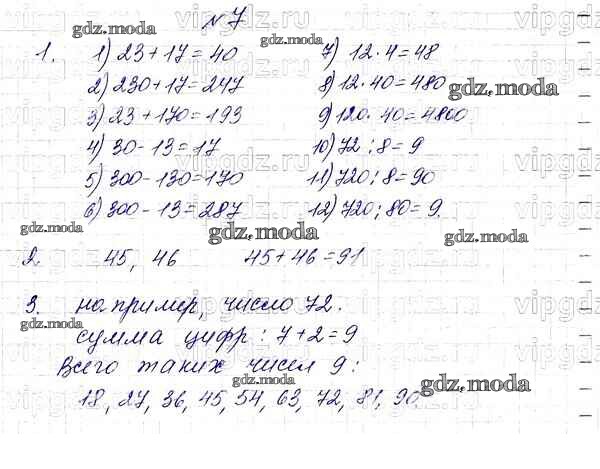 №7
1. 1) 23+17=40
2) 230+17=247
3) 23+170=193
4) 30-13=17
5) 300-130=170
6) 300-13=287
7) 12·4=48
8) 12·40=480
9) 120·40=4800
10) 72:8=9
11) 720:8=90
12) 720:80=9.
2. 45, 46 45+46=91
3. например, число 72.
сумма цифр: 7+2=9
Всего таких чисел 9:
18, 27, 36, 45, 54, 63, 72, 81, 90
gdz.moda
gdz.moda
gdz.moda
gdz.moda
gdz.moda
gdz.moda
gdz.moda
gdz.moda
gdz.moda
vipgdz.ru